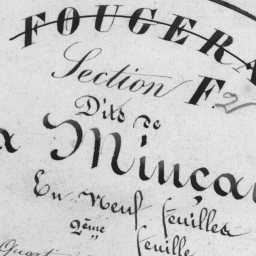 FOUGERA
Section F2
Dite de
a Minçai
En Neuf feuilles
2ème feuille